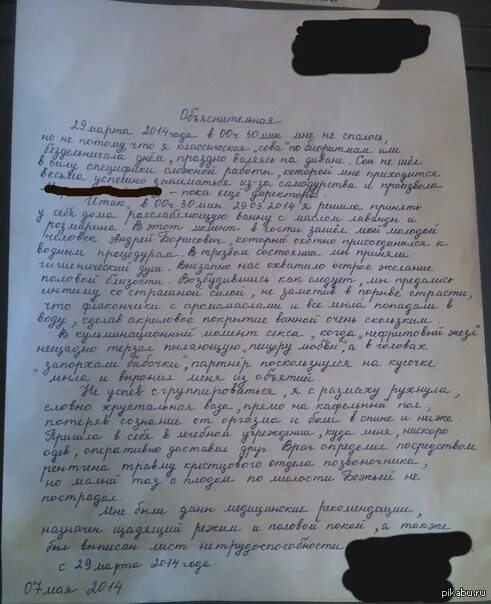 Объяснительная
29 марта 2014 года в 00ч. 30 мин. мне не спалось,
но не потому, что я классическая „сова" по биоритмам или
бездельничала днём, праздно валяясь на диване. Сон не шёл
в силу специфики сложной работы, которой мне приходится
весьма успешно заниматься из-за самодурства и произвола
– пока еще директора.
Итак, в 00ч. 30 мин 29.03.2014 я решила принять
у себя дома расслабляющую ванну с маслом лаванды и
розмарина. В этот момент в гости зашёл мой молодой
человек Андрей Борисович, который охотно присоединился к
водным процедурам. В трезвом состоянии мы приняли
гигиенический душ. Внезапно нас охватило острое желание
половой близости. Возбудившись как следует, мы предались
интиму со страшной силой, не заметив в порыве страсти,
что флакончики с аромамаслами и все мыла попадали в
воду, сделав акриловое покрытие ванной очень скользким.
В кульминационный момент секса, когда „нефритовый жезл"
нещадно терзал пылающую „пещеру любви", а в головах
„запорхали бабочки", партнёр поскользнулся на кусочке
мыла и выронил меня из объятий.
Не успев сгруппироваться, я с размаху рухнула,
словно хрустальная ваза, прямо на кафельный пол,
потеряв сознание от оргазма и боли в спине и ниже.
Пришла в себя в лечебном учреждении, куда меня, наскоро
одев, оперативно доставил друг. Врач определил посредством
рентгена травму крестцового отдела позвоночника,
но малый таз с плодом по милости Божьей не
пострадал.
Мне были даны медицинские рекомендации,
назначен щадящий режим и половой покой, а также
был выписан лист нетрудоспособности
с 29 марта 2014 года.
07 мая 2014
pikabu.ru